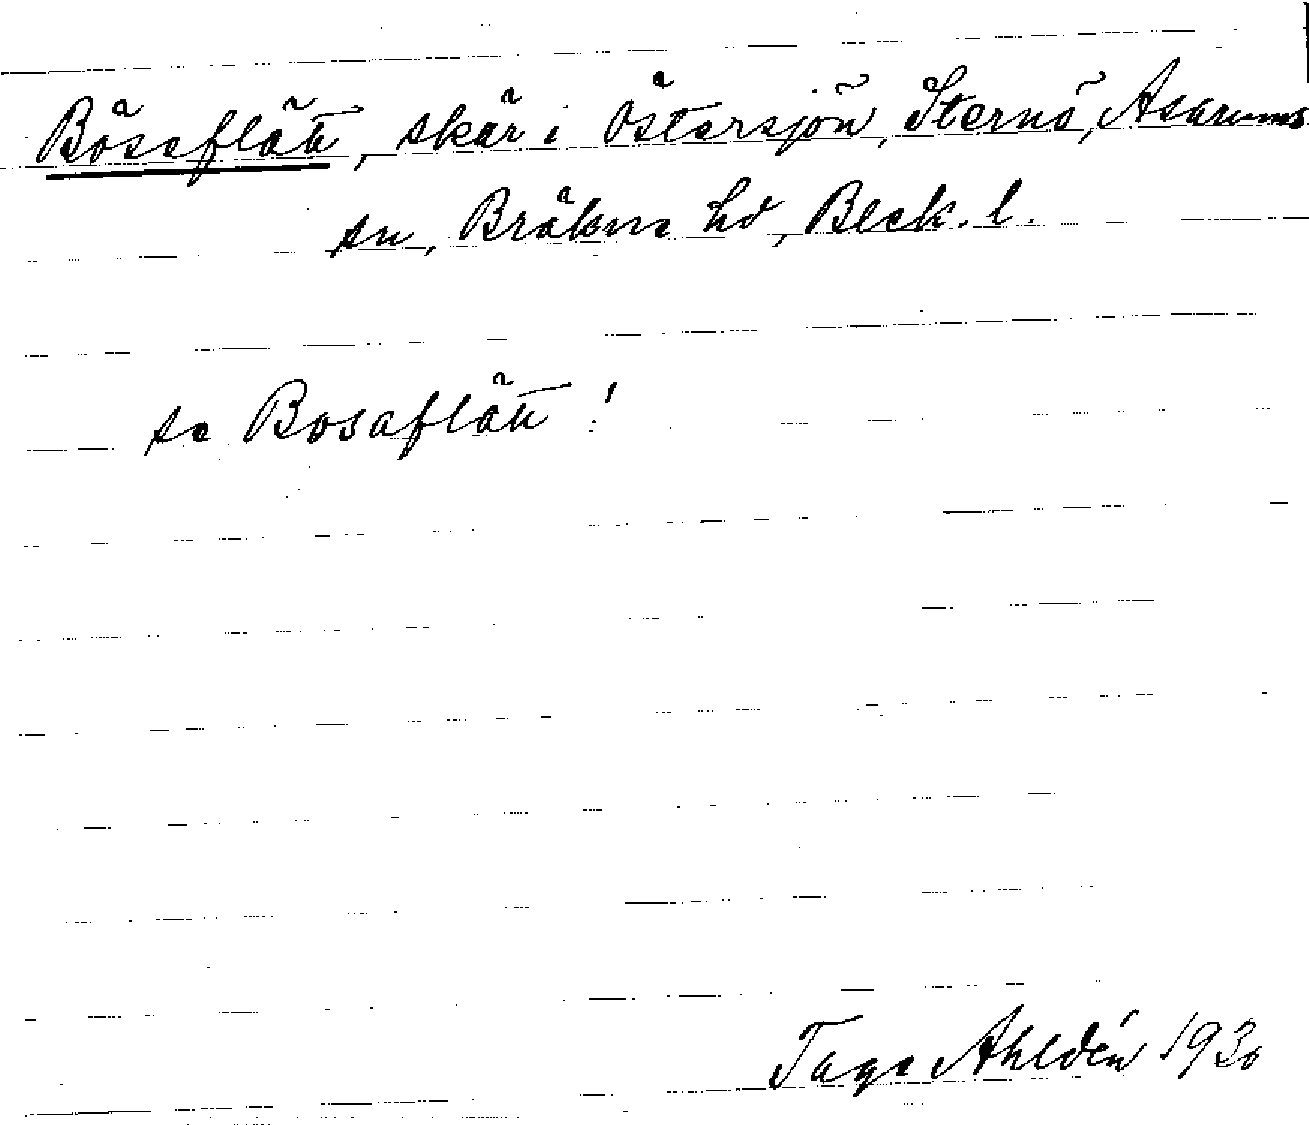 Böseflätt, skär i Östersjön, Sternö, Asarums
sn, Bräkne hd, Blek. l.
se Bosaflätt!
Tage Ahldén 1930